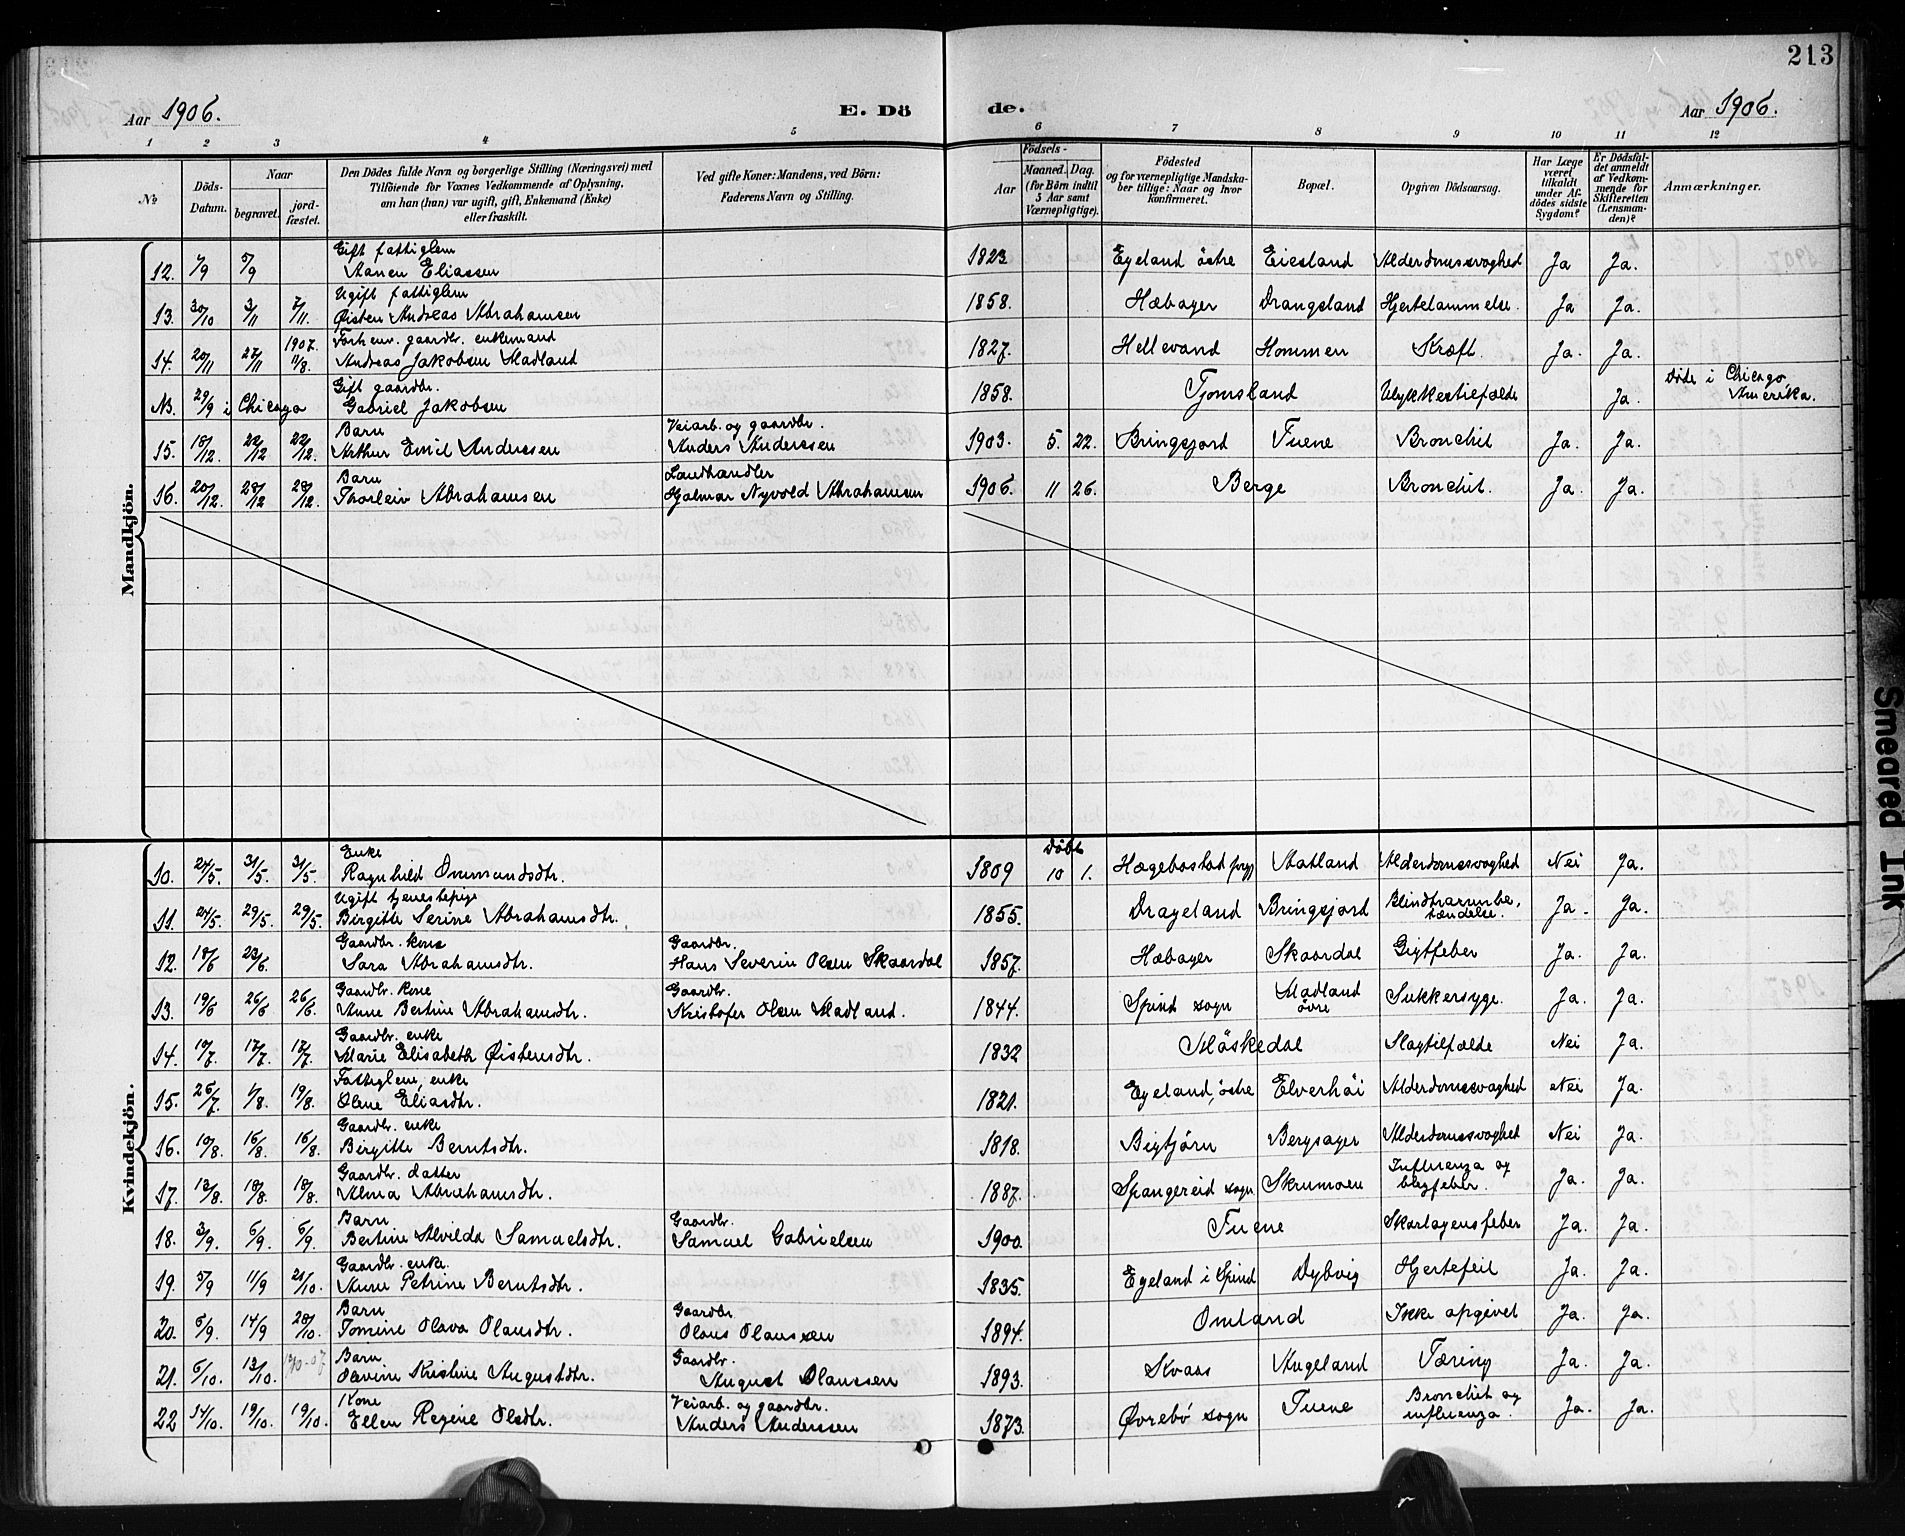 213
Aar 1906. E. Dö de. Aar 1906.
1 2 3 4 5 6 7 8 9 10 11 12
№
Döds-Datum.
Naar
begravet.
jord-fæstet.
Den Dödes fulde Navn og borgerlige Stilling (Næringsvei) med
Tilföiende for Voxnes Vedkommende af Oplysning,
om han (hun) var ugift, gift, Enkemand (Enke)
eller fraskilt.
Ved gifte Koner: Mandens, ved Börn:
Faderens Navn og Stilling.
Födsels-
Aar
Maaned. Dag.
(for Börn indtil
5 Aar samt
Værnepligtige).
Födested
og for værnepligtige Mandska-
ber tillige: Naar og hvor
konfirmeret.
Bopæl.
Opgiven Dödsaarsag.
Har Læge
været
tilkaldt
under Af-
dödes sidste
Sygdom?
Er Dödsfal-
det anmeldt
af Vedkom-
mende for
Skifteretten
(Lensman-
den)?
Anmærkninger.
Mandkjön.
Gift fattiglem
12. 5/9 Aanen Eliassen 1823 Egeland östre Eiesland Alderdomssvaghed Ja Ja.
Ugift fattiglem
13. 30/10 3/11 7/11. Øisten Andreas Abrahamsen 1858. Hæbager Drangsland Hjertelammelse. Ja Ja.
1907. Forhenv. gaardbr. enkemand
14. 20/11 27/11 11/8. Andreas Jakobsen Madland 1827. Hellevand Hommen Kræft. Ja. Ja.
Gift gaardbr. Döde i Chicago,
N3. 29/9 i Chicago Gabriel Jakobsen 1858. Tjomsland Ulykkestilfælde Ja. Amerika.
Barn Veiarb. og gaardbr.
15. 18/12. 22/12 22/12. Arthur Emil Anderssen Anders Anderssen 1903. 5. 22. Bringsjord Tuene Bronchit Ja. Ja.
Barn Landhandler
16. 20/12. 28/12 28/12. Thorleiv Abrahamsen Hjalmar Nyvold Abrahamsen 1906. 11 26. Berge Bronchit. Ja. Ja.
Kvindekjön.
Enke döbt
10. 24/5. 31/5. 31/5. Ragnhild Ommundsdtr. 1809 10 1. Hægebostad prgj Statland Alderdomssvaghed Nei Ja.
Ugift tjenestepige
11. 24/5. 29/5. 29/5. Birgitte Serine Abrahamsdtr. 1855. Drageland Bringsjord Blindtarmsbe-
tændelse. Ja. Ja.
Gaardbr. kone Gaardbr.
12. 18/6 23/6. Sara Abrahamsdtr. Hans Severin Olsen Skaardal 1857. Hæbager Skaardal Gigtfeber Ja. Ja.
Gaardbr. kone Gaardbr.
13. 19/6 26/6 26/6. Anne Bertine Abrahamsdtr. Kristofer Olsen Madland. 1844. Spind sogn Madland
övre Sukkersyge. Ja. Ja.
Gaardbr. enke
14. 10/7. 17/7. 17/7. Marie Elisabeth Øistensdtr. 1832 Möskedal Slagtilfælde Nei Ja.
Fattiglem, enke
15. 26/7. 1/8. 19/8. Olene Eliasdtr. 1821. Egeland, östre Elverhöi Alderdomssvaghed Nei Ja.
Gaardbr. enke
16. 10/8. 16/8. 16/8. Birgitte Berntsdtr. 1818. Bigtjörn Bergsager Alderdomssvaghed Nei Ja.
Gaardbr. datter
17. 13/8. 18/8. 18/8. Alma Abrahamsdtr. 1887. Spangereid sogn Skrumoen Influenza og
Ja. Ja.
Barn Gaardbr.
18. 3/9. 6/9. 6/9. Bertine Alvilda Samuelsdtr. Samuel Gabrielsen 1900. Tuene Skarlagensfeber Ja. Ja.
Gaardbr. enke.
19. 5/9 11/9 21/10. Anne Petrine Berntsdtr. 1835. Egeland i Spind Dybvig Hjertefeil Ja. Ja.
Barn Gaardbr
20. 6/9. 14/9 28/10. Tomine Olava Olausdtr. Olaus Olaussen 1894. Omland Ikke opgivet Ja. Ja.
Barn Gaardbr.
21. 6/10. 13/10. Kristine Augustdtr. August Olaussen 1893. Kvaas Augeland Tæring Ja. Ja.
Kone Veiarb. og gaardbr.
22 14/10. 19/10. 19/10. Ellen Regine Olsdtr. Anders Anderssen 1873. Øvrebö sogn Tuene Bronchit og
influenza. Ja. Ja.
Smeared Ink